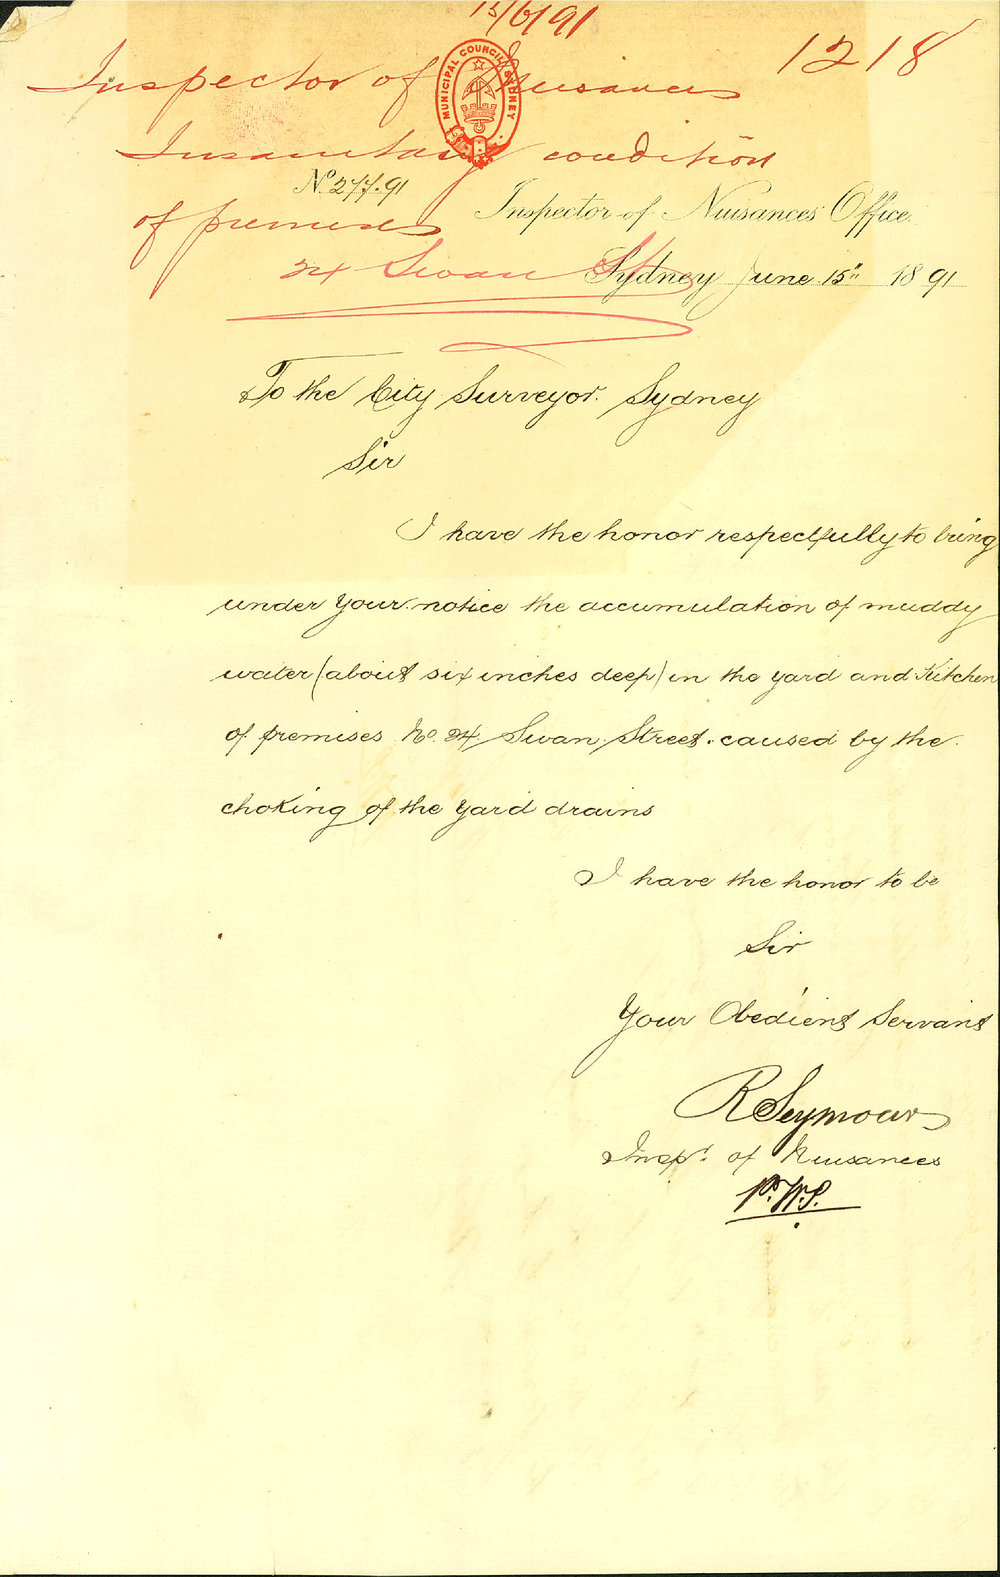 15/6/91
1218
Inspector of Nuisances
MUNICIPAL COUNCIL SYDNEY
Insanitary condition
No. 277.91
of premises
Inspector of Nuisances Office
24 Swan St
Sydney June 15th 1891
To the City Surveyor. Sydney
Sir
I have the honor respectfully to bring
under your notice the accumulation of muddy
water (about six inches deep) in the yard and Kitchen
of premises No. 24 Swan Street. caused by the
choking of the yard drains
I have the honor to be
Sir
Your Obedient Servant
R Seymour
Inspr. of Nuisances